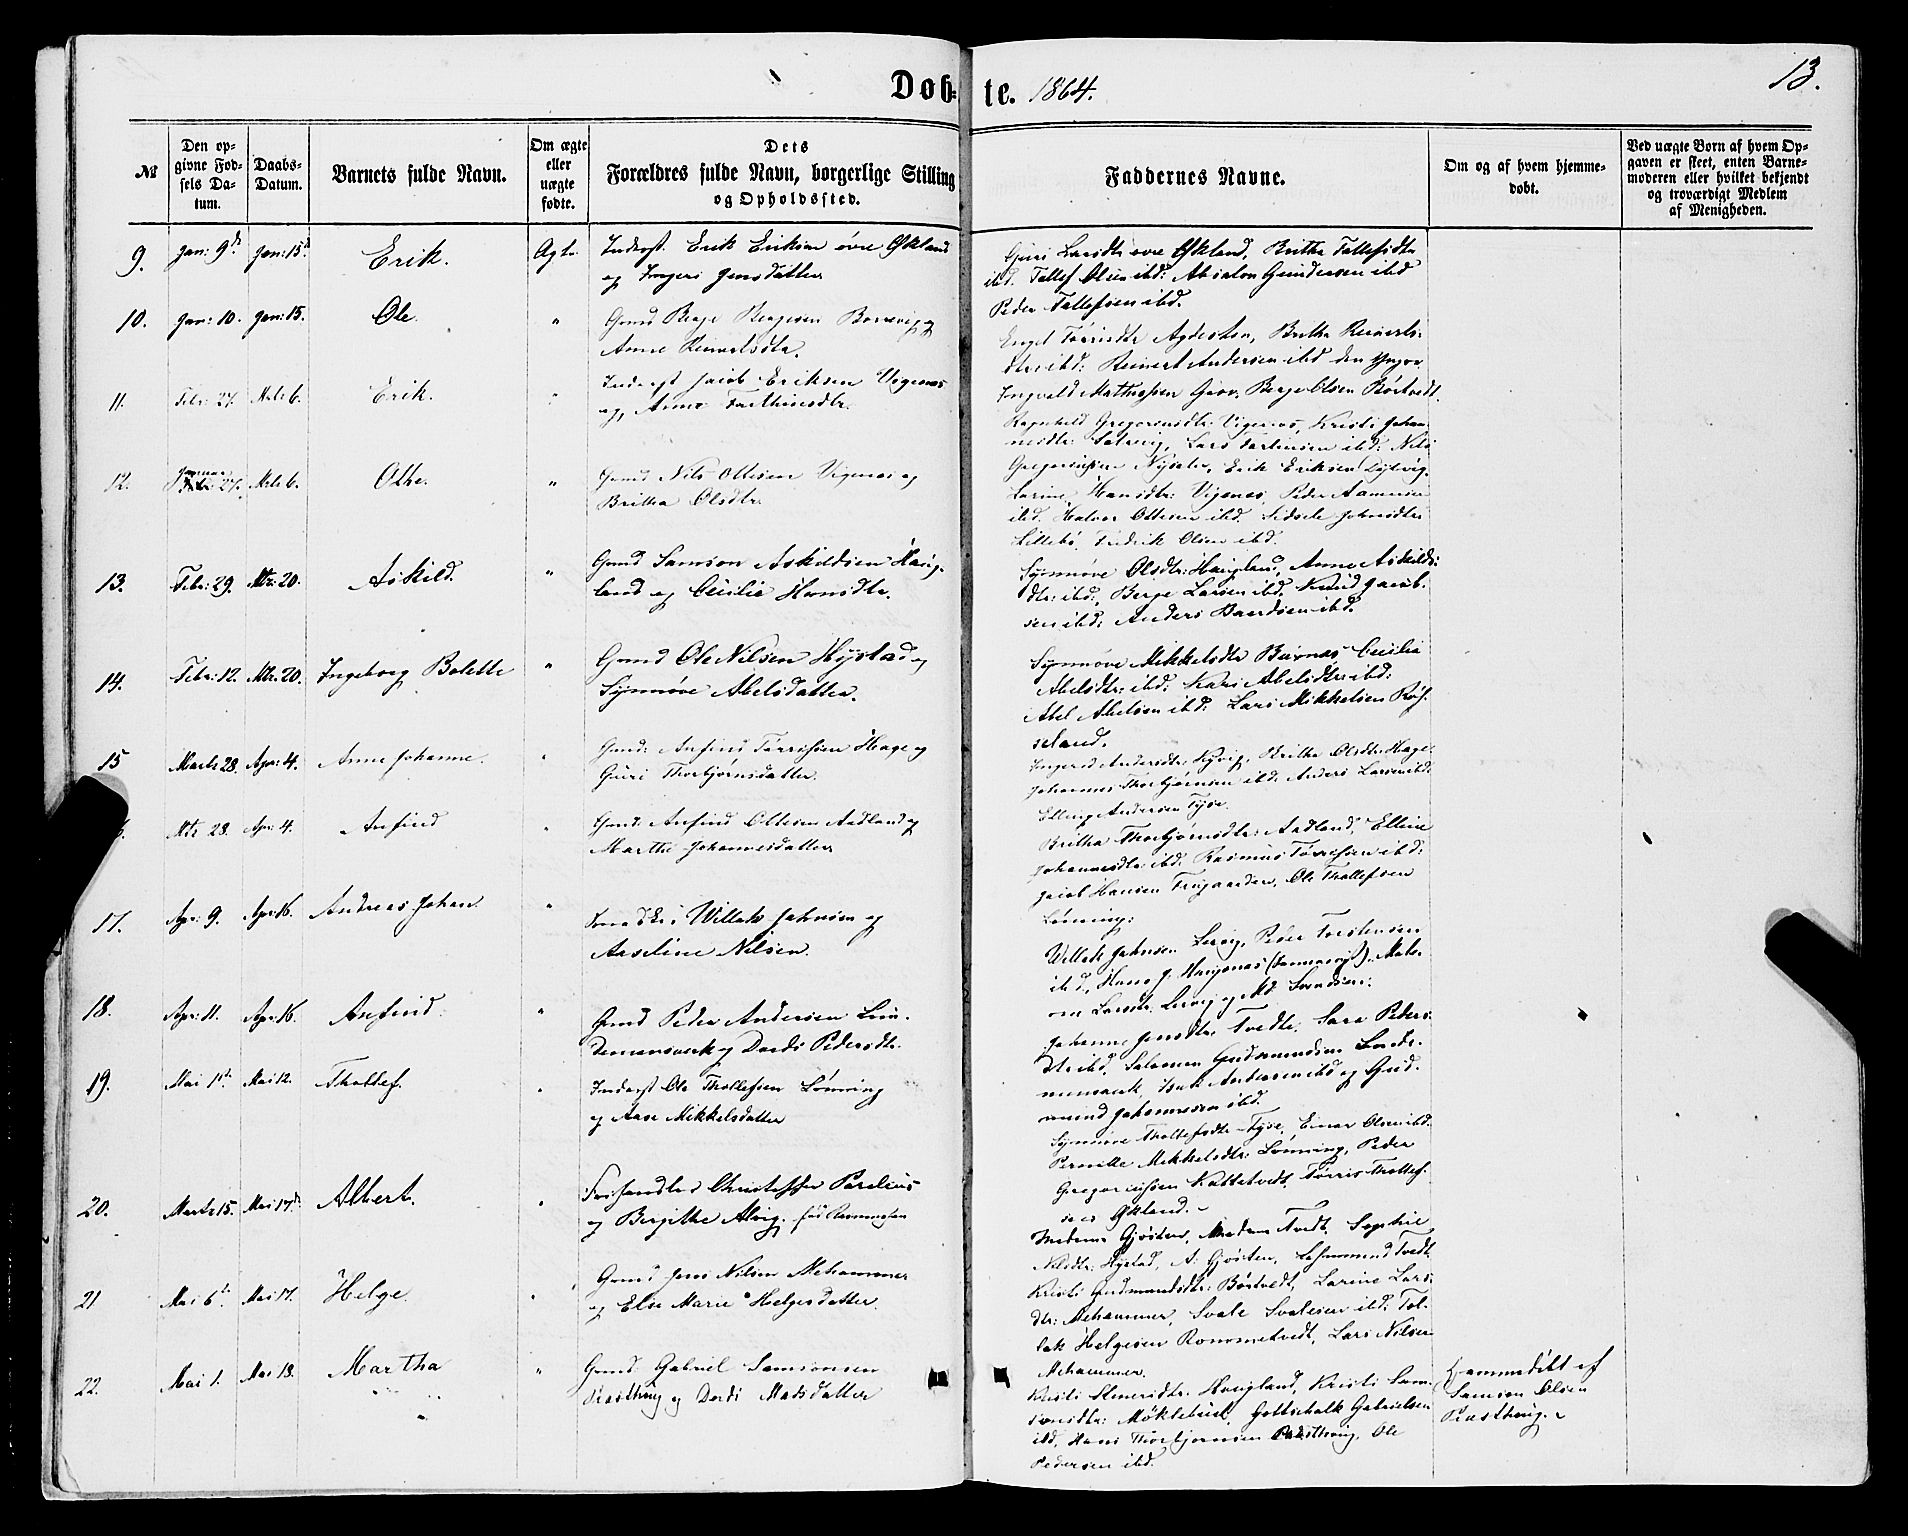 Døb-te. 1864.
13.
№
Den opgivne Fødsels Datum.
Daabs-Datum.
Barnets fulde Navn.
Om ægte eller uægte fødte.
Dets Forældres fulde Navn, borgerlige Stilling og Opholdssted.
Faddernes Navne.
Om og af hvem hjemmedøbt.
Ved uægte Børn af hvem Opgaven er skeet, enten Barnemoderen eller hvilket bekjendt og troværdigt Medlem af Menigheden.
9. Jan: 9de Jan: 15d Erik. Ægte. Inderst Erik Eriksen øvre Økland
og Ingeri Jensdatter
Guri Larsdtr øvre Økland, Britha Tollefsdtr
ibd. Tollef Olsen ibd: Absalon Gundersen ibd
Peder Tollefsen ibd.
10. Jan: 10. Jan: 15. Ole. " Gmd Berge Bergesen Borrevig og
Anne Reinertsdtr.
Engel Tørrisdtr Agdesten, Britha Reinerts-
dtr: ibd: Reinert Andersen ibd den yngre
Ingvald Mathissen Grov, Berge Olsen Børtvedt.
11. Febr: 27. Mrts 6. Erik. " Inderst Jacob Eriksen Vigenæs
og Anne
Ragnhild Gregoriusdtr: Vigenæs, Kristi Johan-
nesdtr: Lars ibd: Nils
Gregoriussen Nysæter, Erik Eriksen
12. Januar 27. Mrts 6. Otte. " Gmd Nils Ottesen Vigenæs og
Britha Olsdtr
Larine Hansdtr: Vigenæs, Peder Aamundsen
ibd. Halvor Ottesen ibd. Sidsele Johnsdtr:
Lillebø, Fredrik Olsen ibd.
13. Febr: 29. Mtz: 20. Askild. " Gmd Samson Askildsen Haug-
land og Cecilie Hansdtr.
Synnøve Olsdtr: Haugland, Anne Askilds-
dtr: ibd:, Berge Larsen ibd. Knud Jacob-
sen ibd: Anders Baardsen ibd.
14. Febr: 12. Mtz. 20. Ingeborg Bolette " Gmd Ole Nilsen Hystad og
Synnøve Abelsdatter.
Synnøve Mikkelsdtr Cecilia
Abelsdtr: ibd: Kari Abelsdtr: ibd:
Abel Abelsen ibd: Lars Mikkelsen Røs-
seland.
15 Marts 28. Apr: 4. Anne Johanne. " Gmd: Anfind Tørrissen Hage og
Guri Thorbjørnsdatter
Ingered Andersdtr: Kyvig, Britha Olsdtr: Hage
Johannes Thorbjørnsen ibd. Anders Larsen ibd:
Elling Andersen Tyse.
Mtz 28. Apr: 4. Anfind " Gmd: Anfind Ottesen Aadland og
Marthe Johannesdatter
Britha Thorbjørnsdtr: Aadland, Elline
Johannesdtr: ibd: Rasmus Tørrissen ibd:
Jacob Hansen Ole Thollefsen
Lønning:
17. Apr: 9. Apr: 16. Andreas Johan " Willak Johnsen og
Aaseline Nilsen.
Willak Johnsen Lervig, Peder Torstensen
ibd, Hans J. Mats-
ine Larsdtr: Lervig og Svendsen:
18. Apr: 11. Apr: 16. Anfind. " Gmd Peder Andersen Lun-
demansverk og Dordi Pedersdtr.
Johanne Jensdtr: Tvedte. Sara Peders-
dtr ibd, Salomon Gudmundsen Lunde-
mansverk, Isak Andersen ibd og Gud-
mund Johannesen ibd.
19. Mai 1ste Mai 12. Thollef. " Inderst Ole Thollefsen Lønning
og Aase Mikkelsdatter
Synnøve Thollefsdtr Tyse, Einar Olsen ibd.
Pernille Mikkelsdtr: Lønning, Peder
Gregoriussen Kattetvedt, Tørris Thollef-
sen Økland.-
20. Marts 15. Mai 17d Albert. " Forhandler Christoffer Parelius
og Birgithe Alvig. født Rasmussen
Madame Gjøsten, Madam Tvedt, Sophie
Nilsdtr: Hystad, A: Gjøsten, Tvedt
21 Mai 6te Mai 17. Helge. " Gmd Jens Nilsen Mehammer
og Else Marie Helgesdatter.
Kristi Gudmundsdtr: Børtvedt, Larine Lars-
dtr: Mehammer, Svale Svalesen ibd: Tol-
lak Helgesen Rommetvedt, Lars Nilsen
Mehammer.
22. Mai 1. Mai 18. Martha " Gmd Gabriel Samsonsen
Prestbug og Dordi Matsdatter
Kristi Haugland, Kristi Sam-
sonsdtr: Møklebust, Gottschalk Gabrielsen
ibd, Hans Thorbjørnsen Ole
Pedersen ibd.
Hjemmedøbt af
Samson Olsen